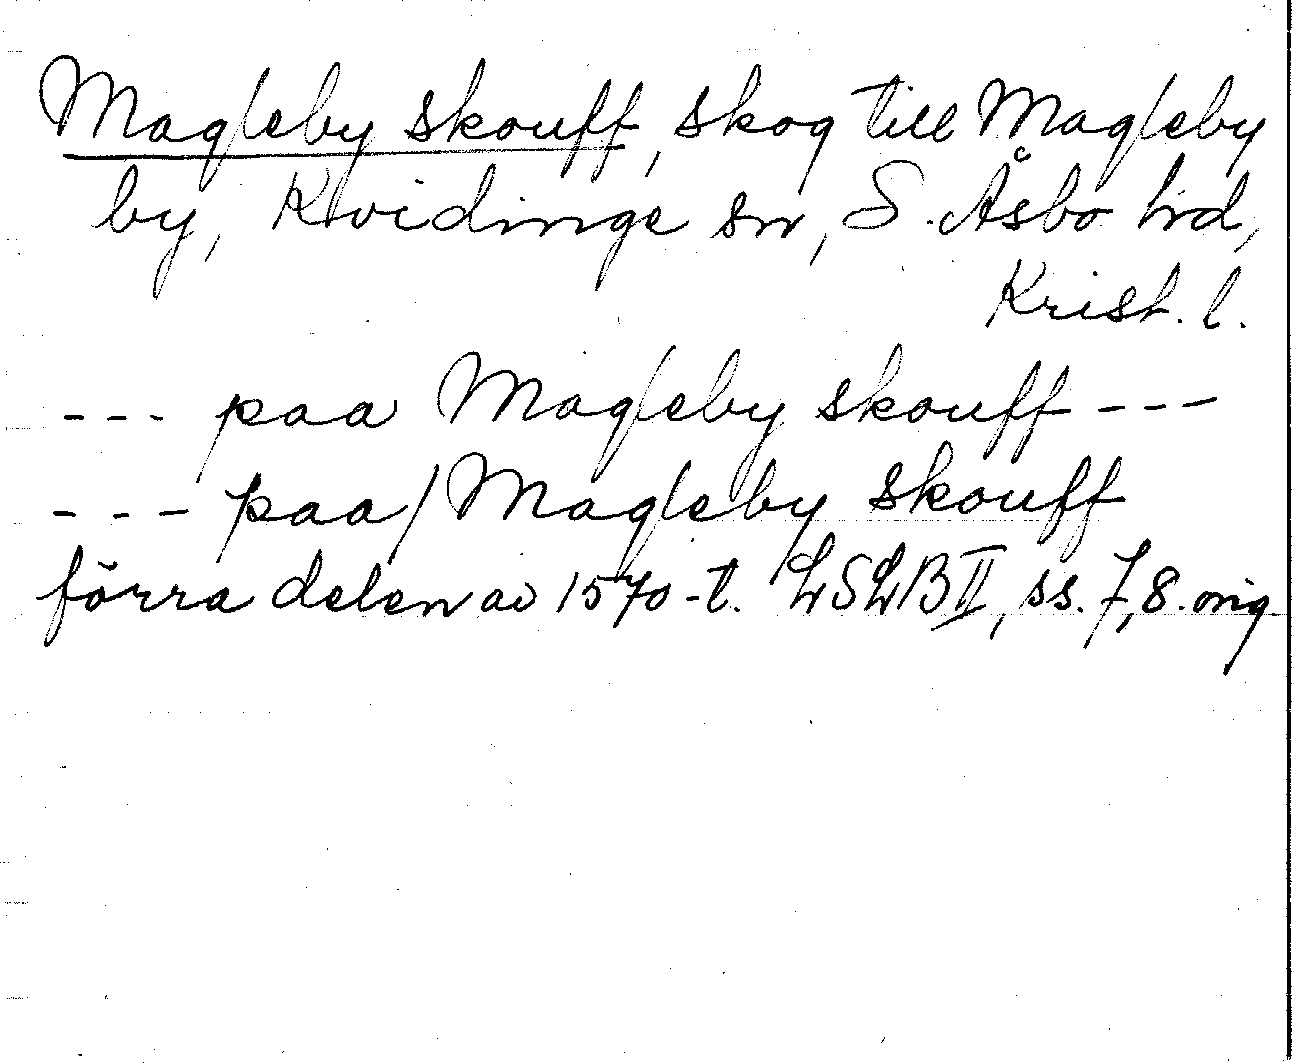 Magleby skouff, skog till Magleby
by, Kvidinge sn, S. Åsbo hd,
Krist. l.
--- paa Magleby skouff ---
--- paa / Magleby skouff
förra delen av 1570-t. LSLB II, ss. 7, 8. orig.